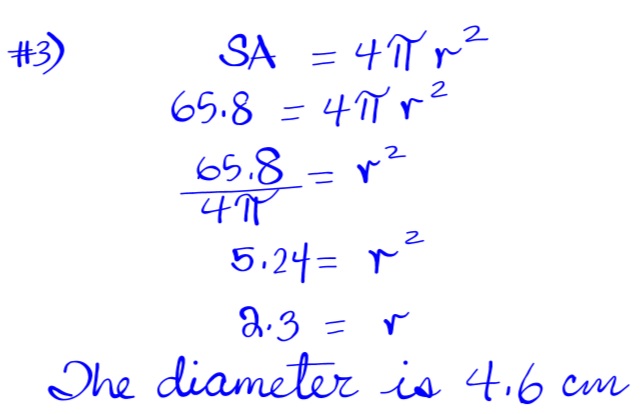 #3) SA = 4π r²
65.8 = 4π r²
65.8/4π = r²
5.24 = r²
2.3 = r
The diameter is 4.6 cm